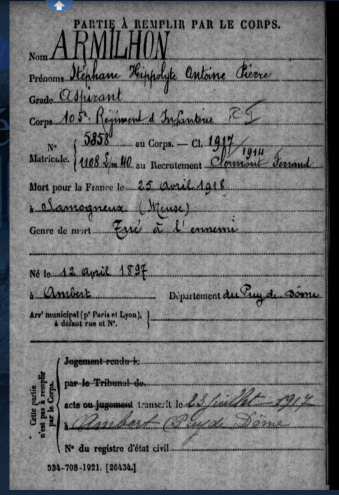 PARTIE À REMPLIR PAR LE CORPS.
Nom ARMILHON
Prénoms Stéphane Hippolyte Antoine Pierre
Grade Aspirant
Corps 105e Régiment d'Infanterie RI
N° Matricule. 5858 au Corps. — Cl. 1917
1108 Lm 40 au Recrutement 1914 Clermont Ferrand
Mort pour la France le 25 avril 1918
à Samogneux (Meuse)
Genre de mort Tué à l'ennemi
Né le 12 avril 1897
à Ambert Département du Puy de Dôme
Arrt municipal (pr Paris et Lyon), à défaut rue et N°.
Cette partie n'est pas à remplir par le Corps.
Jugement rendu le
par le Tribunal de
acte ou jugement transcrit le 23 juillet 1917
à Ambert Puy de Dôme
N° du registre d'état civil
534-708-1921. [26434.]